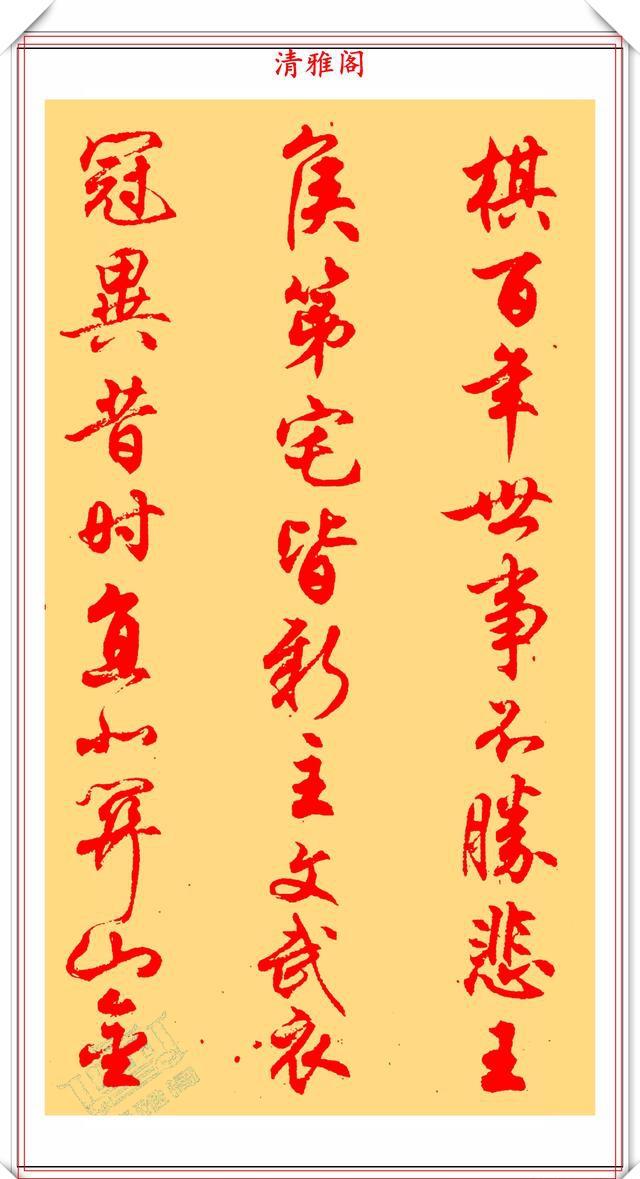 清雅阁
棋百年世事不勝悲王
侯第宅皆新主文武衣
冠異昔时直北関山金